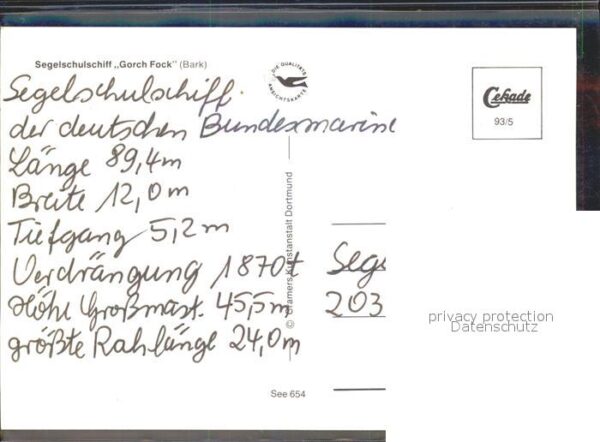 Segelschulschiff „Gorch Fock" (Bark)
DIE QUALITÄTS
ANSICHTSKARTE
Cekade
93/5
Segelschulschiff.
der deutschen Bundesmarine
Länge 89,4m
Breite 12,0m
Tiefgang 5,2m
Verdrängung 1870t
Höhe Großmast. 45,5m
größte Rahlänge 24,0m
© Cramers Kunstanstalt Dortmund
Sege
203
privacy protection
Datenschutz
See 654